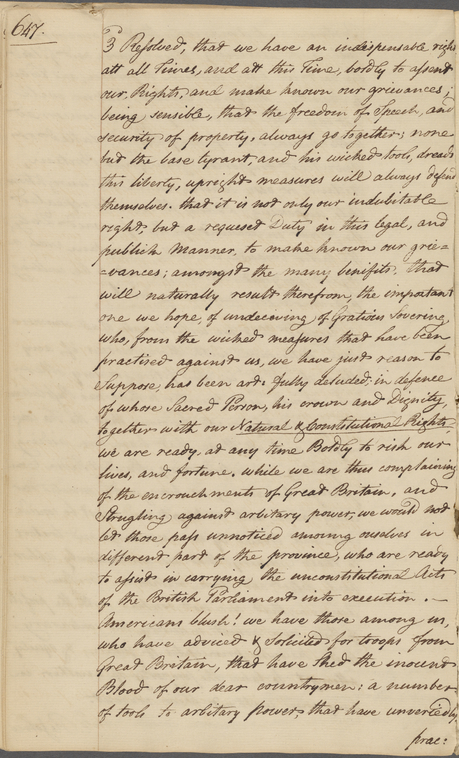 647.
3 Resolved, that we have an indispensable right
att all Times, and att this Time, boldly to assent
our, Rights, and make known our grievances;
being sensible, that the freedom of Speech, and
security of property, always go together; none
but the base tyrant, and his wicked tools, dreads
this liberty, upright measures will always defend
themselves. that it is not only our indubitable
right, but a requeset Duty in this legal, and
publich Manner, to make known our grie=
=vances; amongst the many benifits, that
will naturally result therefrom, the important
one we hope, of undeceiving of Gratious Sovering
who, from the wicked measures that have been
practised against us, we have just reason to
Suppose, has been art fully deluded; in defence
of whose Sacred Person, his crown and Dignity,
together with our Natural & Constitutional Rights
we are ready, at any time Boldly to risk our
lives, and fortune. while we are thus complaining
of the encrouchments of Great Britain, and
Strugling against arbitary power, we would not
let those pass unnoticed amoing ourselves in
different part of the province, who are ready
to assist in carrying the unconstitutional Acts
of the British Parliament into execution. —
Americans blush! we have those among us,
who have adviced & Solicited for troops from
Great Britain, that have shed the inocund
Blood of our dear countrymen: a number
of tools to arbitary power, that have unvertedly
prac: